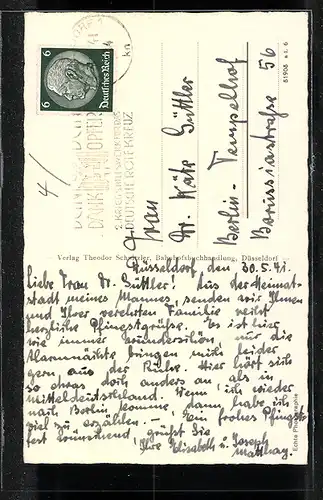 6
Deutsches Reich
DEIN DANK DEIN OPFER
2. KRIEGSHILFSWERK FÜR DAS
DEUTSCHE ROTE KREUZ
4/
Frau
Dr. Käte Güttler
Berlin - Tempelhof
Borussiastraße 56
81908 a.t. 6
Verlag Theodor Schnitzler, Bahnhofsbuchhandlung, Düsseldorf
Düsseldorf den 30.5.41.
Liebe Frau Dr. Güttler! Aus der Heimat-
stadt meines Mannes, senden wir Ihnen
und Ihrer verehrten Familie recht
herzliche Pfingstgrüße. Es ist hier
wie immer wunderschön, nur die
Alarmnächte bringen mich leider
gern aus der Ruhe. Hier hört sich
so etwas doch anders an, als in
Mitteldeutschland. Wenn ich wieder
nach Berlin komme, dann habe ich
viel zu erzählen. — Ein frohes Pfingst-
fest wünschend, grüßt Sie
Ihre Elisabeth u. Joseph
Echte Photographie